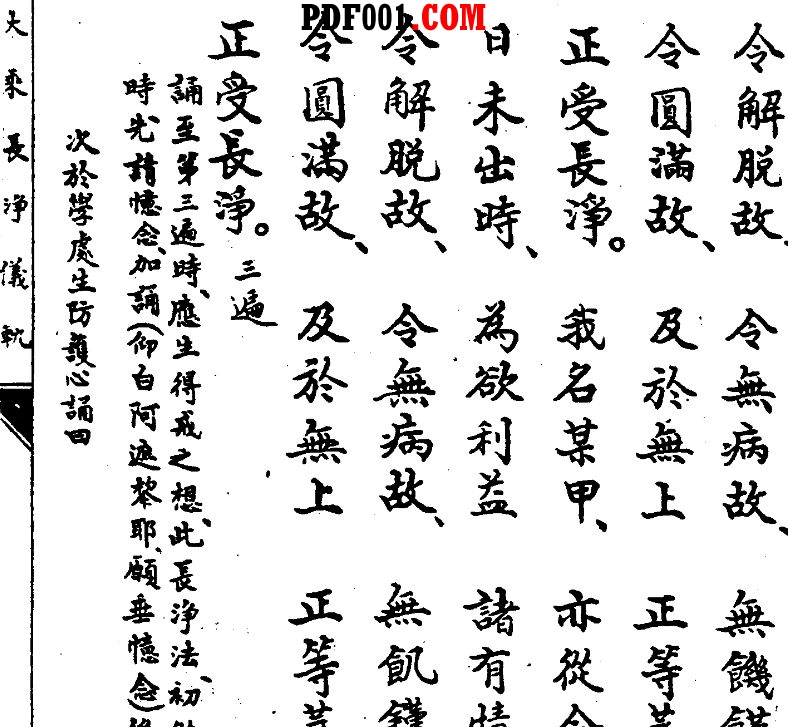 PDF001.COM
令解脫故、 令無病故、 無饑
令圓滿故、 及於無上 正等
正受長淨。 我名某甲、 亦從
日未出時、 為欲利益 諸有情
令解脫故、 令無病故、 無飢饉
令圓滿故、 及於無上 正等
正受長淨。 三遍
誦至第三遍時、應生得戒之想、此長淨法、初
時先請憶念、加誦(仰白阿遮黎耶、願垂憶念)
次於學處生防護心誦曰
大乘長淨儀軌